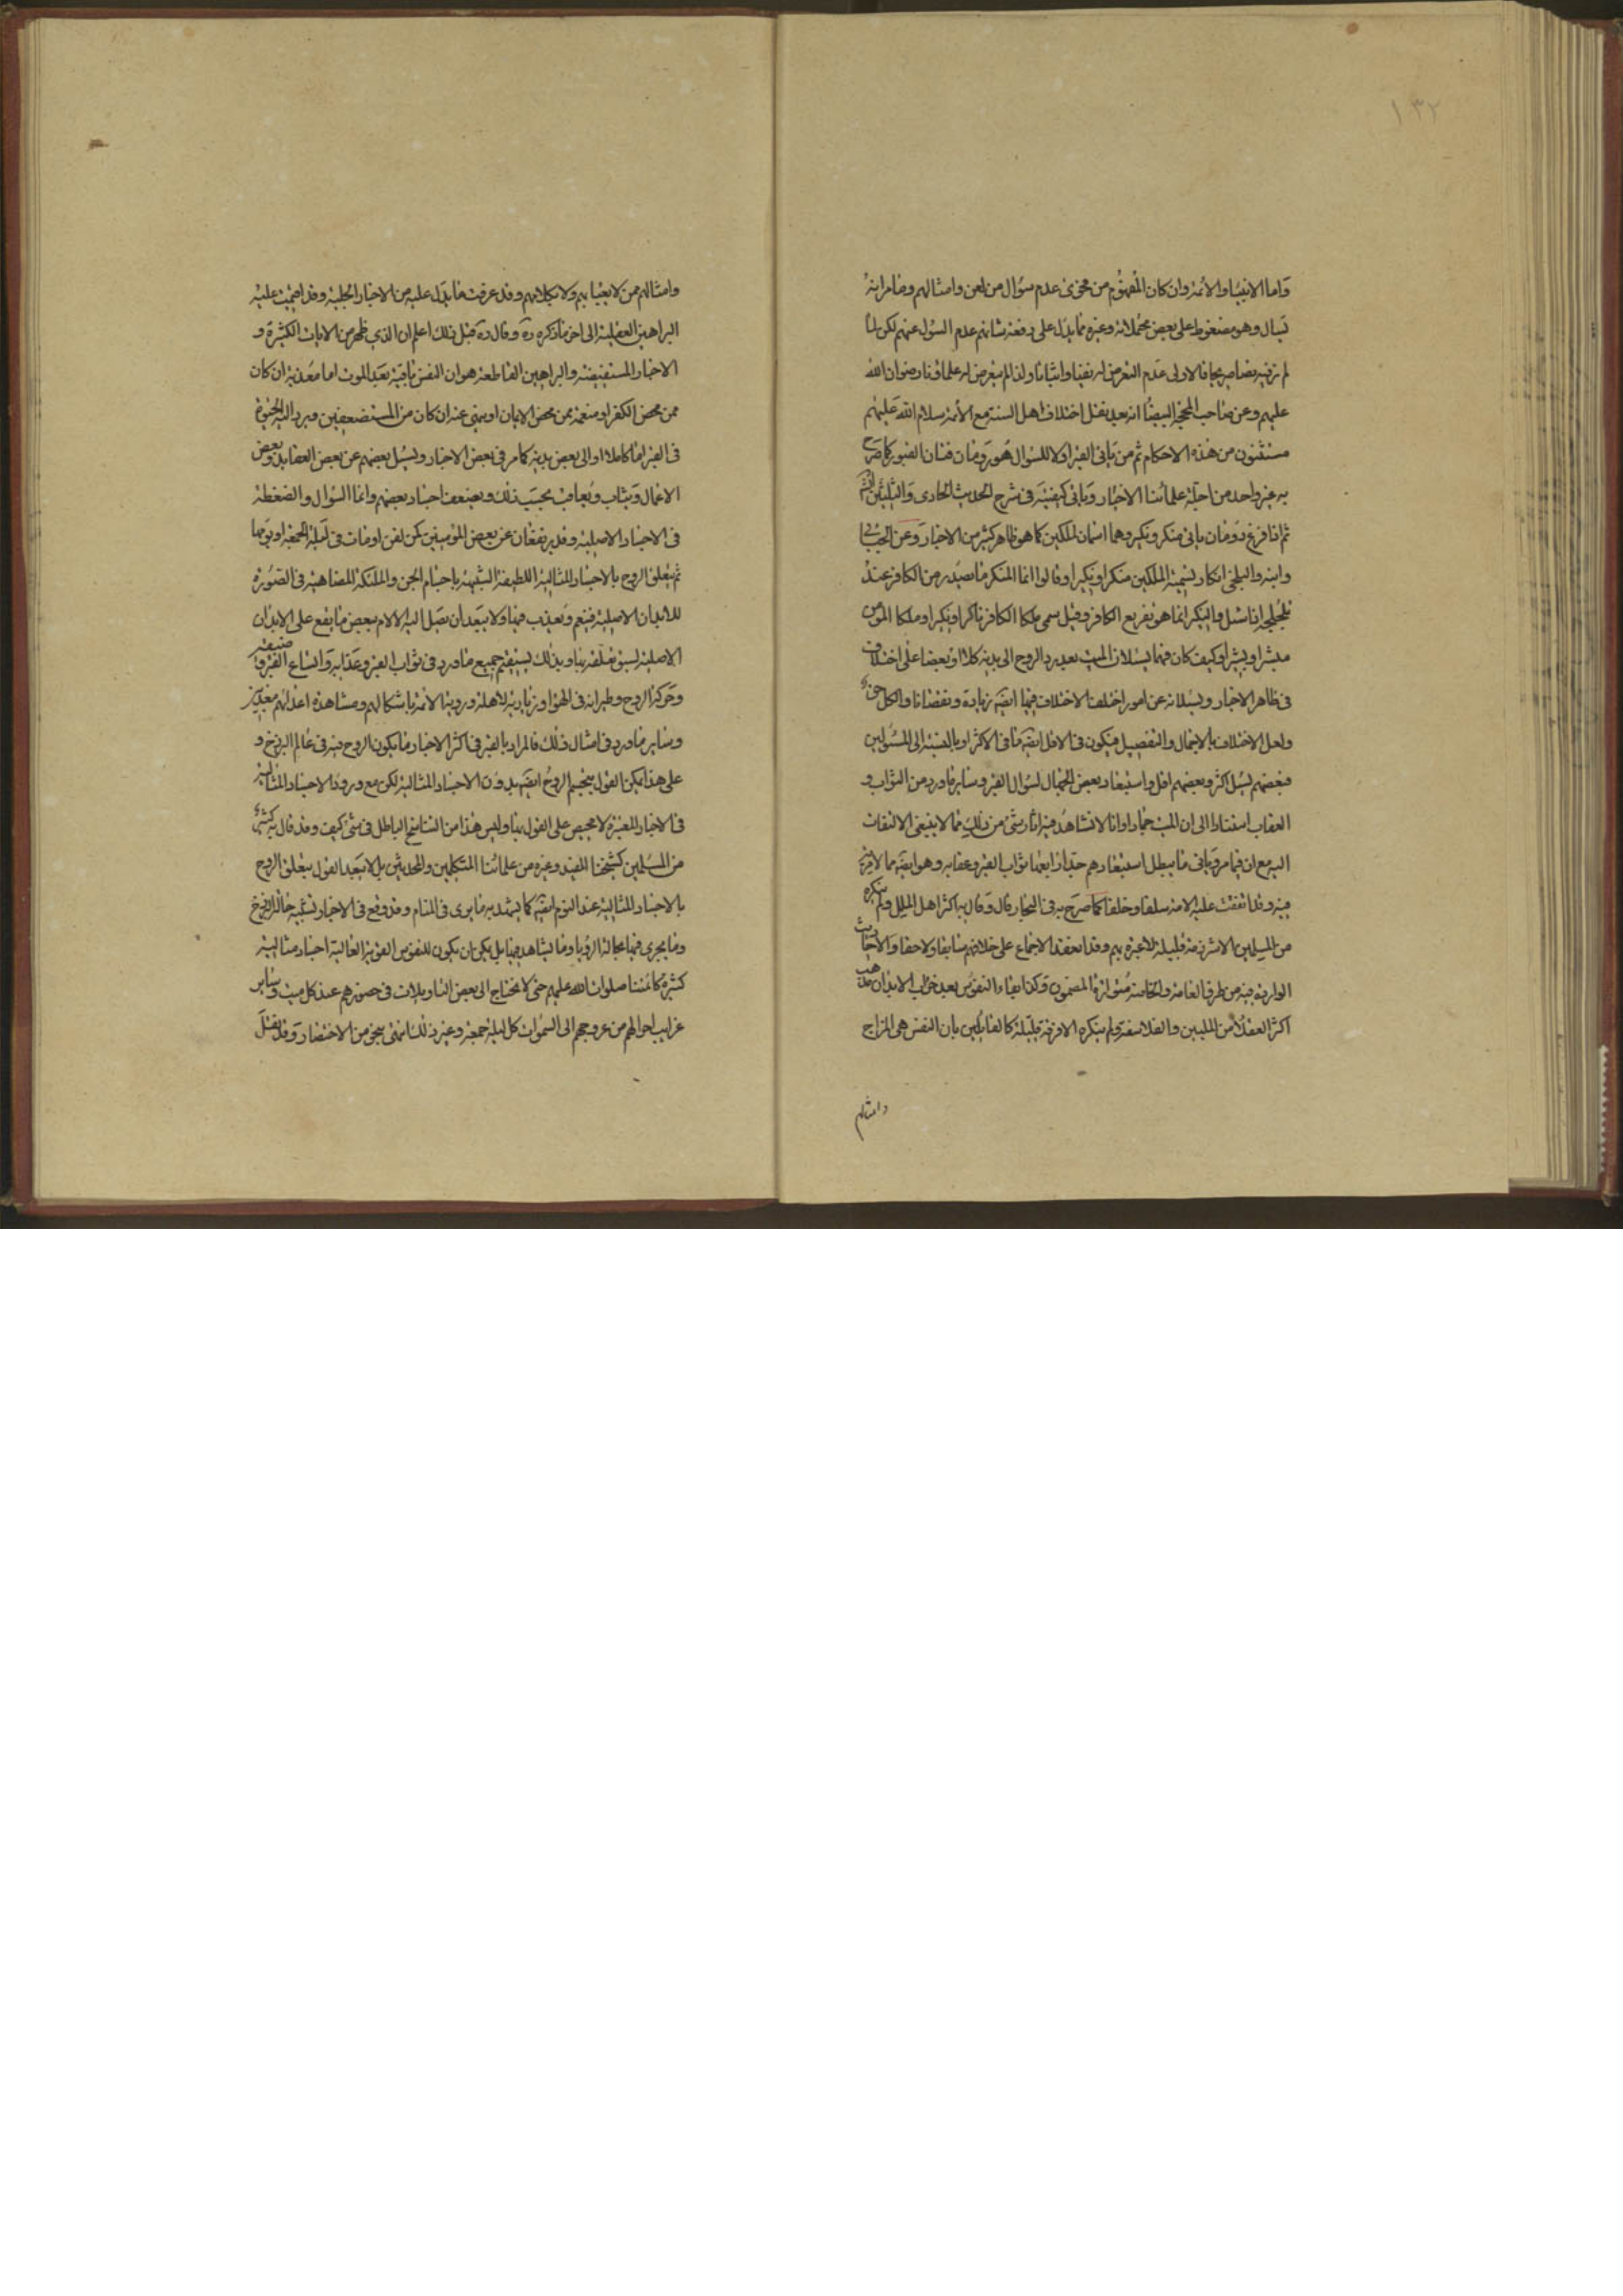 ١٣٢
واما الانبيا والائمة وان كان المفهوم من فحوى عدم سؤال من لقن وامثالهم وما مر انه
يسال وهو مضغوط على بعض محتملاته وغيره مما يدل على رفعة شانهم عدم السؤل عنهم لكن لما
لم نر فيه نصا صريحا فالاولى عدم التعرض له نفيا واثباتا ولذا لم يتعرض له علماؤنا رضوان الله
عليهم وعن صاحب المحجة البيضا انه بعد نقل اختلاف اهل السنة مع الأئمة سلام الله عليهم
مستثنون من هذه الاحكام ثم من ياتى القبر اولا للسؤال هو رومان فتان القبور كما صرح
به غير واحد من اجلة علمائنا الاخيار وياتى كيفيته فى شرح الحديث الحادى والثلثين
ثم اذا فرغ رومان ياتى منكر ونكير وهما اسمان لملكين كما هو ظاهر كثير من الاخبار وعن الجبائى
وابنه والبلخى انكار تسمية الملكين منكرا ونكيرا وقالوا انما المنكر ما يصدر من الكافر عند
تلجلجه اذا سئل والنكير انما هو تقريع الكافر وقيل سمى ملكا الكافر ناكرا ونكيرا وملكا المؤمن
مبشرا وبشيرا وكيف كان فهما يسئلان الميت بعد رد الروح الى بدنه كلا او بعضا على اختلاف
فى ظاهر الاخبار ويسئلانه عن امور اختلفت الاختلاف فيها ايضه زيادة ونقصانا والكل حق
ولعل الاختلاف بالاجمال والتفصيل فيكون فى الاقل ايضه ما فى الاكثر او بالنسبة الى المسئولين
فبعضهم يسئل اكثر وبعضهم اقل واستبعاد بعض الجهال لسؤال القبر وساير ما ورد من الثواب و
العقاب استنادا الى ان الميت جماد او انا لا نشاهد فيه اثار شئ من ذلك مما لا ينبغى الالتفات
اليه مع ان فيما مر وياتى ما يبطل استبعادهم جدا ثواب القبر وعقابه وهو ايضه مما لا ريب
فيه وقد اتفقت عليه الامة سلفا وخلفا كما صرح به فى البحار قال وقال به اكثر اهل الملل ولم ينكره
من المسلمين الا شرذمة قليلة لا عبرة بهم وقد انعقد الاجماع على خلافهم سابقا ولاحقا والاحاديث
الواردة فيه من طرق العامة والخاصة متواترة المضمون وكذا بقاء النفوس بعد خراب الابدان مذهب
اكثر العقلا من المليين والفلاسفة ولم ينكره الا فرقة قليلة كالقائلين بان النفس هى المزاج
وامثالهم
وامثالهم ممن لا يعبا بهم ولا بكلامهم وقد عرفت ما يدل عليه من الاخبار الجلية وقد اقيمت عليه
البراهين العقلية الى اخر ما ذكره ره وقال ره قبل ذلك اعلم ان الذى ظهر من الايات الكثيرة و
الاخبار المستفيضة والبراهين القاطعة هو ان النفس باقية بعد الموت اما معذبة ان كان
ممن محض الكفر او منعمة ممن محض الايمان او يلهى عنه ان كان من المستضعفين ويرد اليه الحيوة
فى القبر اما كاملا او الى بعض بدنه كما مر فى بعض الاخبار ويسئل بعضهم عن بعض العقايد وبعض
الاعمال ويثاب ويعاقب بحسب ذلك ويضغط اجساد بعضهم وانما السؤال والضغطة
فى الاجساد الاصلية وقد يرتفعان عن بعض المؤمنين كمن لقن او مات فى ليلة الجمعة او يومها
ثم يتعلق الروح بالاجساد المثالية اللطيفة الشبيهة باجسام الجن والملئكة المضاهية فى الصورة
للابدان الاصلية فينعم ويعذب فيها ولا يبعد ان يصل اليه الالام ببعض ما يقع على الابدان
الاصلية لسبق تعلقه بها وبذلك يستقيم جميع ما ورد فى ثواب القبر وعذابه واتساع القبر وضيقه
وحركة الروح وطيرانه فى الهوا وزيارته لاهله ورؤية الائمة باشكالهم ومشاهدة اعدائهم معذبين
وساير ما ورد فى امثال ذلك فالمراد بالقبر فى اكثر الاخبار ما يكون الروح فيه فى عالم البرزخ و
على هذا يمكن القول بتجسم الروح ايضه بدون الاجساد المثالية لكن مع ورود الاجساد المثالية
فى الاخبار المعتبرة لا محيص على القول بها وليس هذا من التناسخ الباطل فى شئ كيف وقد قال به كثير
من المسلمين كشيخنا المفيد وغيره من علمائنا المتكلمين والمحدثين بل لا يبعد القول بتعلق الروح
بالاجساد المثالية عند النوم ايضه كما يشهد به ما يرى فى المنام وقد وقع فى الاخبار تشبيه حالة البرزخ
وما يجرى فيها بحالة الرؤيا وما يشاهد فيها بل يمكن ان يكون للنفوس القوية العالية اجساد مثالية
كثيرة كائمتنا صلوات الله عليهم حتى لا نحتاج الى بعض التاويلات فى حضورهم عند كل ميت وساير
غرايب احوالهم من عروجهم الى السموات كل ليلة جمعة وغير ذلك انتهى بنحو من الاختصار وقد نقل